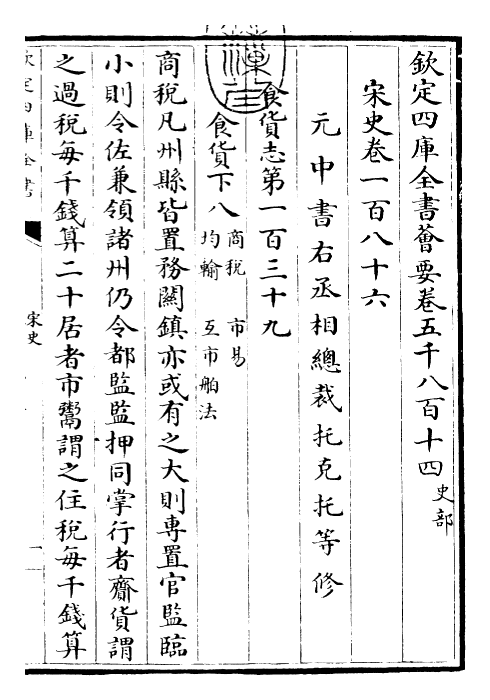 欽定四庫全書薈要卷五千八百十四 史部
宋史卷一百八十六
元中書右丞相總裁托克托等修
食貨志第一百三十九
食貨下八 商稅 市易 均輸 互市舶法
商稅凡州縣皆置務關鎮亦或有之大則專置官監臨
小則令佐兼領諸州仍令都監監押同掌行者齎貨謂
之過稅每千錢算二十居者市鬻謂之住稅每千錢算
欽定四庫全書
宋史
一